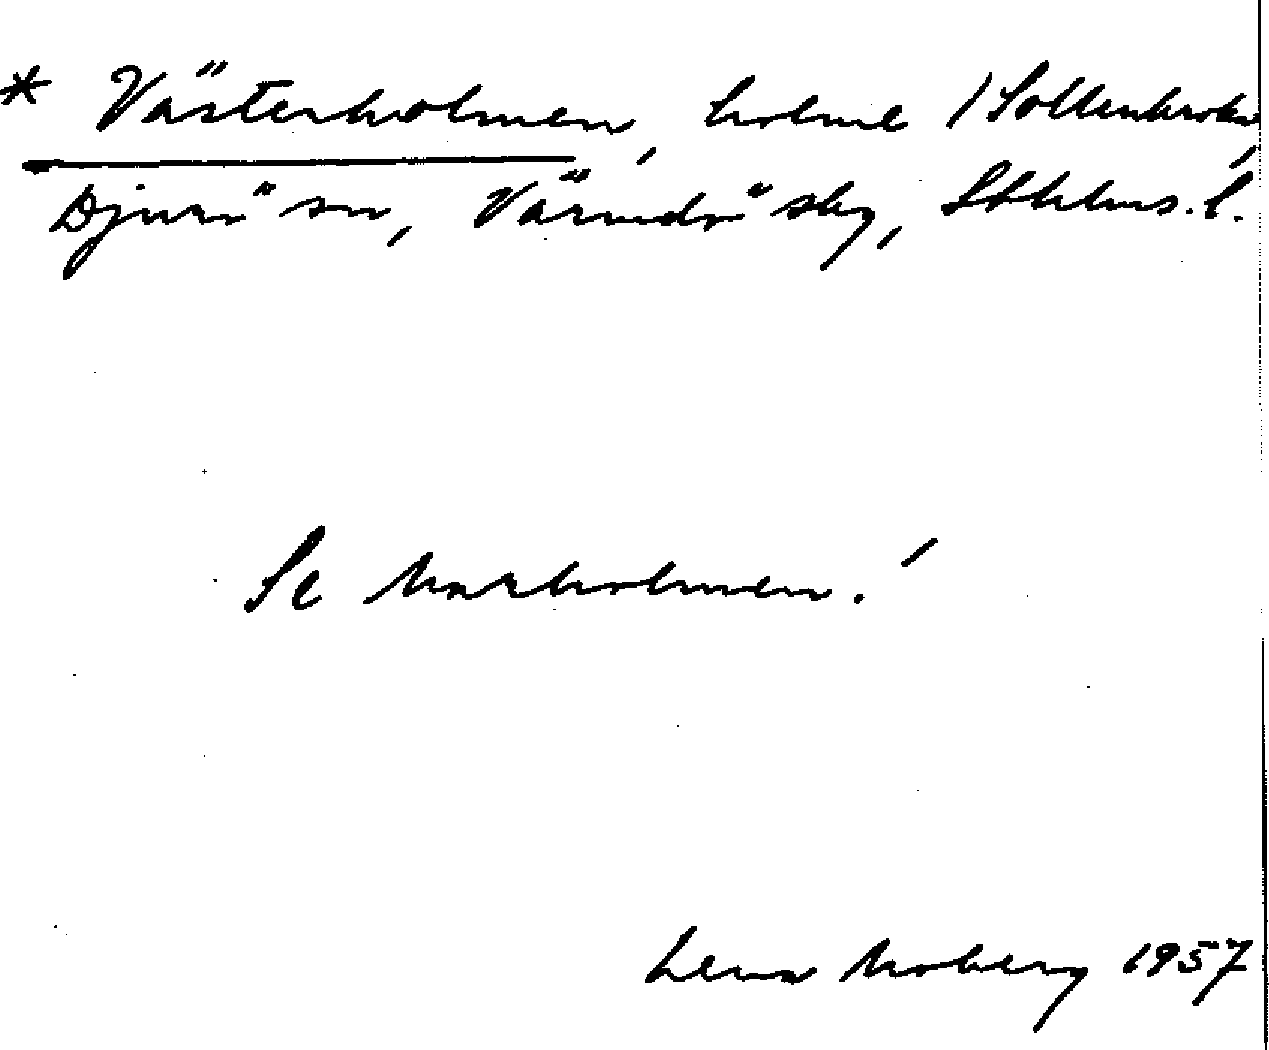 * Västerholmen, holme / Sollenkroka,
Djurö sn, Värmdö skg, Sthlms. l.
Se Norrholmen!
Lena Moberg 1957